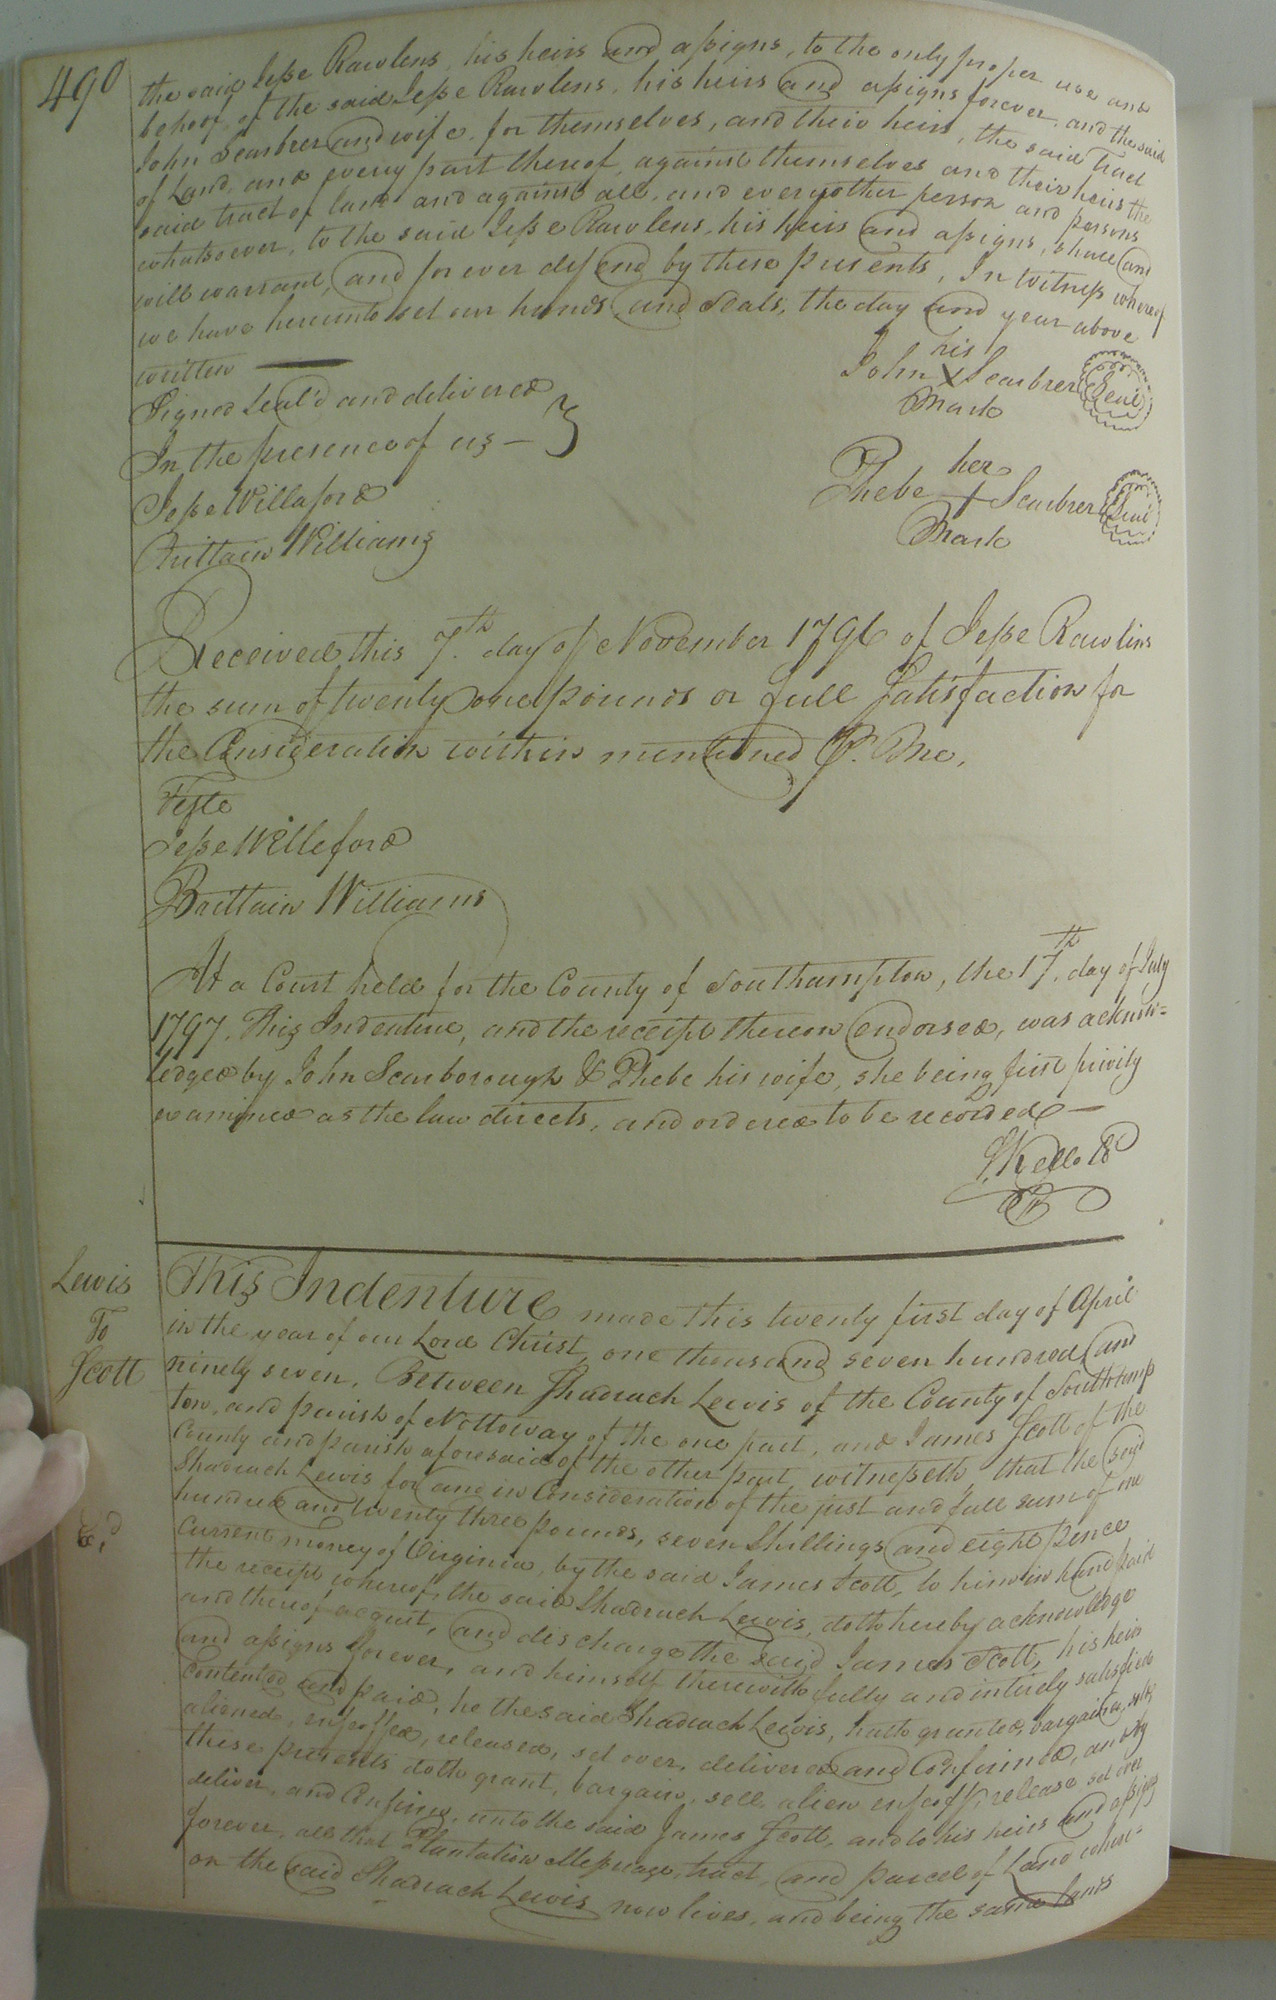 490
the said Jesse Rawlens, his heirs and assigns, to the only proper use and
behoof, of the said Jesse Rawlens, his heirs and assigns forever, and the said
John Scarbrer and wife, for themselves, and their heirs, the said Tract
of Land, and every part thereof, against themselves and their heirs the
said tract of land and against all, and every other person and persons
whatsoever, to the said Jesse Rawlens, his heirs and assigns, shall and
will warrant, and for ever defend by these presents, In Witness whereof
we have hereunto set our hands, and Seals, the day and year above
written
Signed Seal'd and delivered
In the presence of us
Jesse Willaford
Brittain Williams
his
John X Scarbrer Seal
Mark
her
Phebe + Scarbrer Seal
Mark
Received this 7.th day of November 1796 of Jesse Rawlins
the sum of twenty one pounds or full Satisfaction for
the Consideration within mentioned P. Me,
Teste
Jesse Willeford
Brittain Williams
At a Court held for the County of Southampton, the 17.th day of July
1797. This Indenture, and the receipt thereon endorsed, was acknow-
ledged by John Scarborough & Phebe his wife, she being first privily
examined as the law directs, and ordered to be recorded
Lewis
To
Scott
This Indenture made this twenty first day of April
in the year of our Lord Christ, one thousand seven hundred and
ninety seven, Between Shadrach Lewis of the County of Southamp
ton, and parish of Nottoway of the one part, and James Scott of the
County and parish aforesaid of the other part, witnesseth, that the said
Shadrach Lewis for and in Consideration of the just and full sum of one
hundred and twenty three pounds, seven Shillings and eight pence
Current money of Virginia, by the said James Scott, to him in hand paid
the receipt whereof, the said Shadrach Lewis, doth hereby acknowledge
and thereof acquit, and discharge the said James Scott, his heirs
and assigns forever, and himself therewith fully and intirely satisfied
Contented and paid, he the said Shadrach Lewis, hath granted, bargain'd, sold
aliened, enfeoffed, released, set over, delivered and Confirmed, and by
these presents doth grant, bargain, sell, alien enfeoff, release set over
deliver, and Confirm, unto the said James Scott, and to his heirs and assigns
forever, all that Plantation Messuage, tract, and parcel of Land where-
on the said Shadrach Lewis now lives, and being the same lands